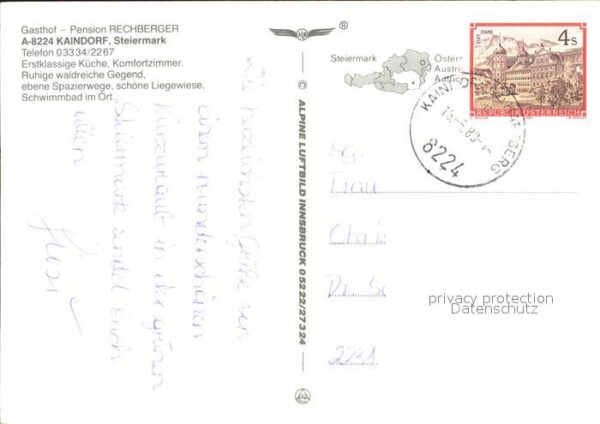 Gasthof – Pension RECHBERGER
A-8224 KAINDORF, Steiermark
Telefon 03334/2267
Erstklassige Küche, Komfortzimmer.
Ruhige waldreiche Gegend,
ebene Spazierwege, schöne Liegewiese,
Schwimmbad im Ort.
®
© ALPINE LUFTBILD INNSBRUCK 05222/27324
Steiermark
Österr
Austri
STIFT STAMS
4 S
REPUBLIK ÖSTERREICH
KAIND
BERG
8224
Die herzlichsten Grüße von
einem wunderschönen
Kurzurlaub in der grünen
Steiermark sendet Euch
allen
Frau
Chris
Dr. Se
2231
privacy protection
Datenschutz